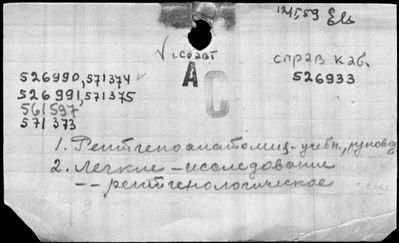 121,59
√ 1. соавт
справ каб.
526933
АС
526990, 571374
526991, 571375
561597
571373
1. Рентгеноанатомия - учебн., руковод
2. Легкие - исследование
-- рентгенологическое